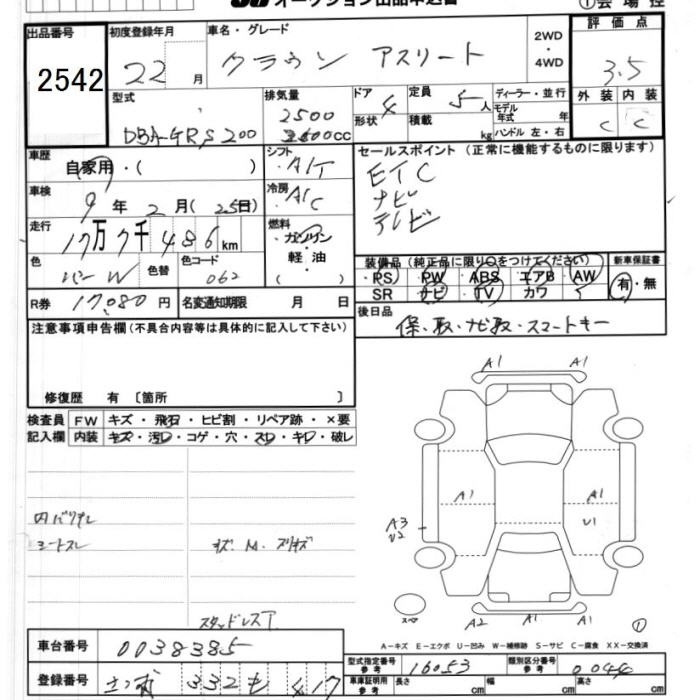 オークション出品申込書
①会場控
出品番号 2542
初度登録年月 22 月
車名・グレード クラウン アスリート
2WD ・ 4WD
評価点 3.5
外装 C 内装 C
型式 DBA-GRS200
排気量 2500 cc
ドア 形状 4
定員 5人
積載 kg
ディーラー・並行
モデル年式 年
ハンドル 左・右
車歴 自家用・( )
シフト A/T
車検 9年 2月 (25日)
冷房 A/C
走行 17万7千486km
燃料 ガソリン 軽・油 ( )
色 W 色替 色コード 062
R券 17,080円 名変通知期限 月 日
セールスポイント (正常に機能するものに限ります)
ETC
ナビ
テレビ
装備品 (純正品に限り○をつけてください)
PS PW ABS エアB AW
SR ナビ TV カワ
新車保証書 有・無
後日品 保、取、ナビ取、スマートキー
注意事項申告欄 (不具合内容等は具体的に記入して下さい)
修復歴 有 〔箇所 〕
検査員記入欄
FW キズ・飛石・ヒビ割・リペア跡・×要
内装 キズ・汚レ・コゲ・穴・スレ・キレ・破レ
シートスレ
スタッドレスT
A1 A1
A1 A1
A3 U2 U1
A2 A1 A1
①
A-キズ E-エクボ U-凹み W-補修跡 S-サビ C-腐食 XX-交換済
車台番号 0038385
登録番号 332 も 417
型式指定番号 参考 16053
類別区分番号 参考 0044
車庫証明用 参考 長さ cm 幅 cm 高さ cm